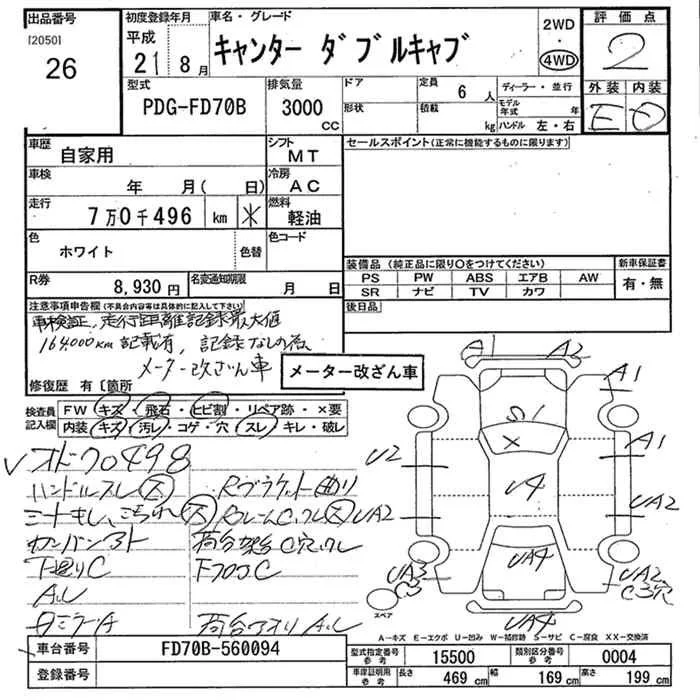 出品番号
[2050]
26
初度登録年月
平成
21 8月
車名・グレード
キャンター ダブルキャブ
2WD
・
4WD
評価点
2
外装 内装
E D
型式
PDG-FD70B
排気量
3000
CC
ドア
形状
定員
6人
積載
kg
ディーラー・並行
モデル年式 年
ハンドル 左・右
車歴
自家用
シフト
MT
車検
年 月( 日)
冷房
AC
走行
7万0千496 km ※
燃料
軽油
色
ホワイト
色替
色コード
R券
8,930円
名変通知期限
月 日
セールスポイント(正常に機能するものに限ります)
装備品(純正品に限り○をつけてください)
PS PW ABS エアB AW
SR ナビ TV カワ
新車保証書
有・無
後日品
注意事項申告欄(不具合内容等は具体的に記入して下さい)
車検証、走行距離記録最大値
164,000km記載有、記録なしの為
メーター改ざん車
メーター改ざん車
修復歴 有〔箇所
検査員
記入欄
FW キズ・飛石・ヒビ割・リペア跡・×要
内装 キズ・汚レ・コゲ・穴・スレ・キレ・破レ
オドク0498
ハンドルスレ大
Rブラケット曲り
カンバンアト
下廻りC
下フロC
AルL
荷台アオリ AルL
A1
A2
A1
S1
X
A1
U2
U4
UA2
UA4
UA3
C3
UA2
C3穴
UA4
スペア
A-キズ E-エクボ U-凹み W-補修跡 S-サビ C-腐食 XX-交換済
車台番号
FD70B-560094
登録番号
型式指定番号
参考
15500
類別区分番号
参考
0004
車庫証明用
参考
長さ
469cm
幅
169cm
高さ
199cm